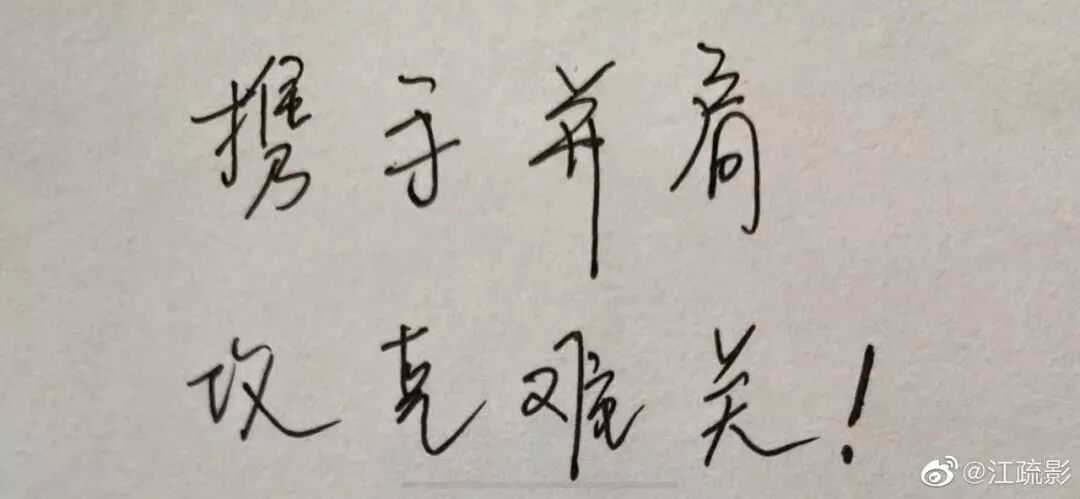 携手并肩
攻克难关！
@江疏影